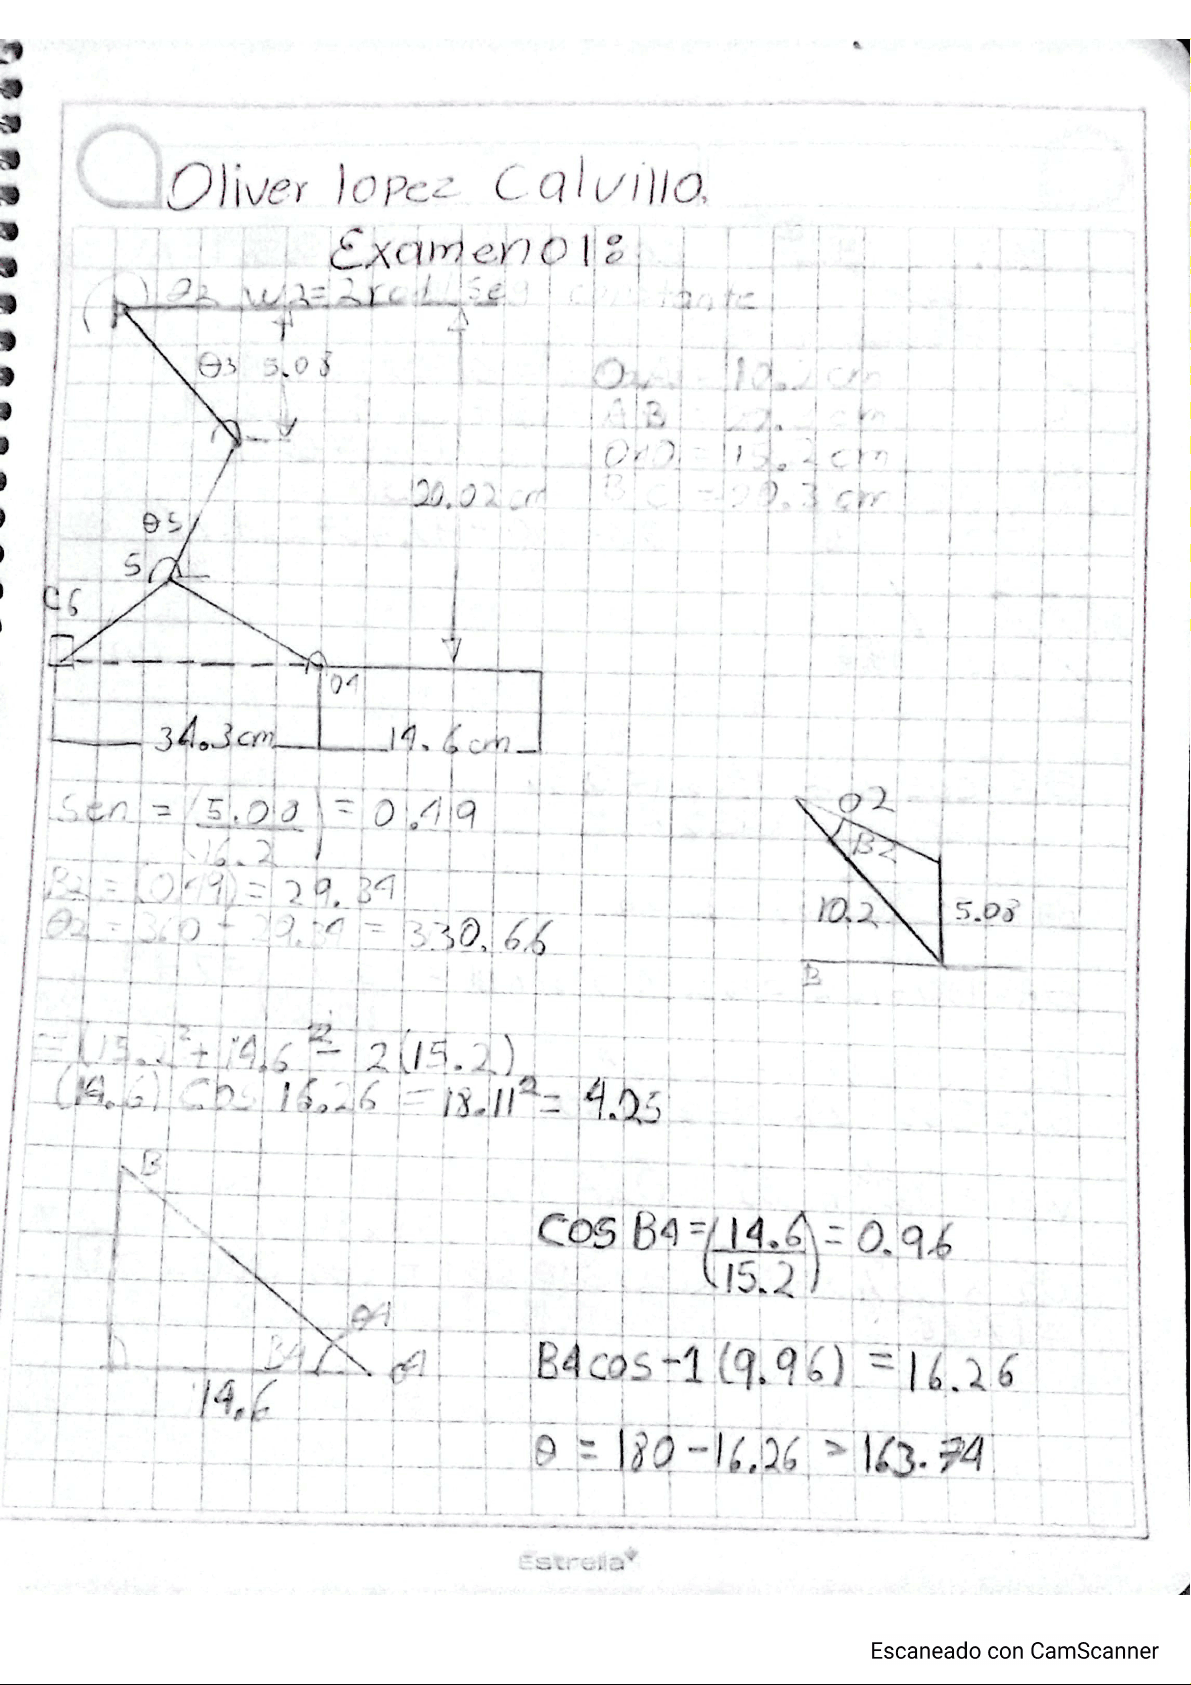 Oliver lopez Calvillo.
Examen 01:
θ2 w2=2rad/seg constante
θ3 5.08
O2A = 10.2 cm
AB =
O4D = 15.2 cm
20.02 cm
BC = 29.3 cm
θ5
5
C6
04
34.3cm
14.6 cm
Sen = (5.08/16.2) = 0.49
B2 = (0.49) = 29.34
θ2 = 360 - 29.34 = 330.66
O2
B2
10.2
5.08
B
= (15.2² + 14.6² - 2(15.2)
(14.6) COS 16.26 = 18.11² = 4.25
B
θ4
B4
04
14.6
COS B4 = (14.6/15.2) = 0.96
B4cos-1 (9.96) = 16.26
θ = 180 - 16.26 = 163.74
Estrella
Escaneado con CamScanner